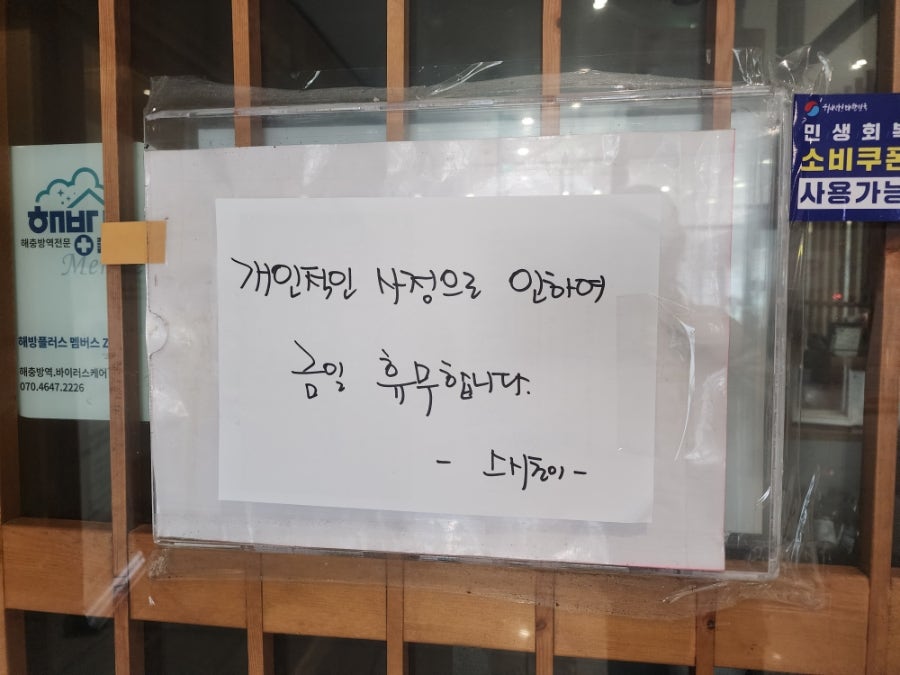 개인적인 사정으로 인하여
금일 휴무합니다.
- 스시촌이 -
해방
해충방역전문
해방플러스 멤버스
해충방역.바이러스케어
070.4647.2226
민생회복
소비쿠폰
사용가능